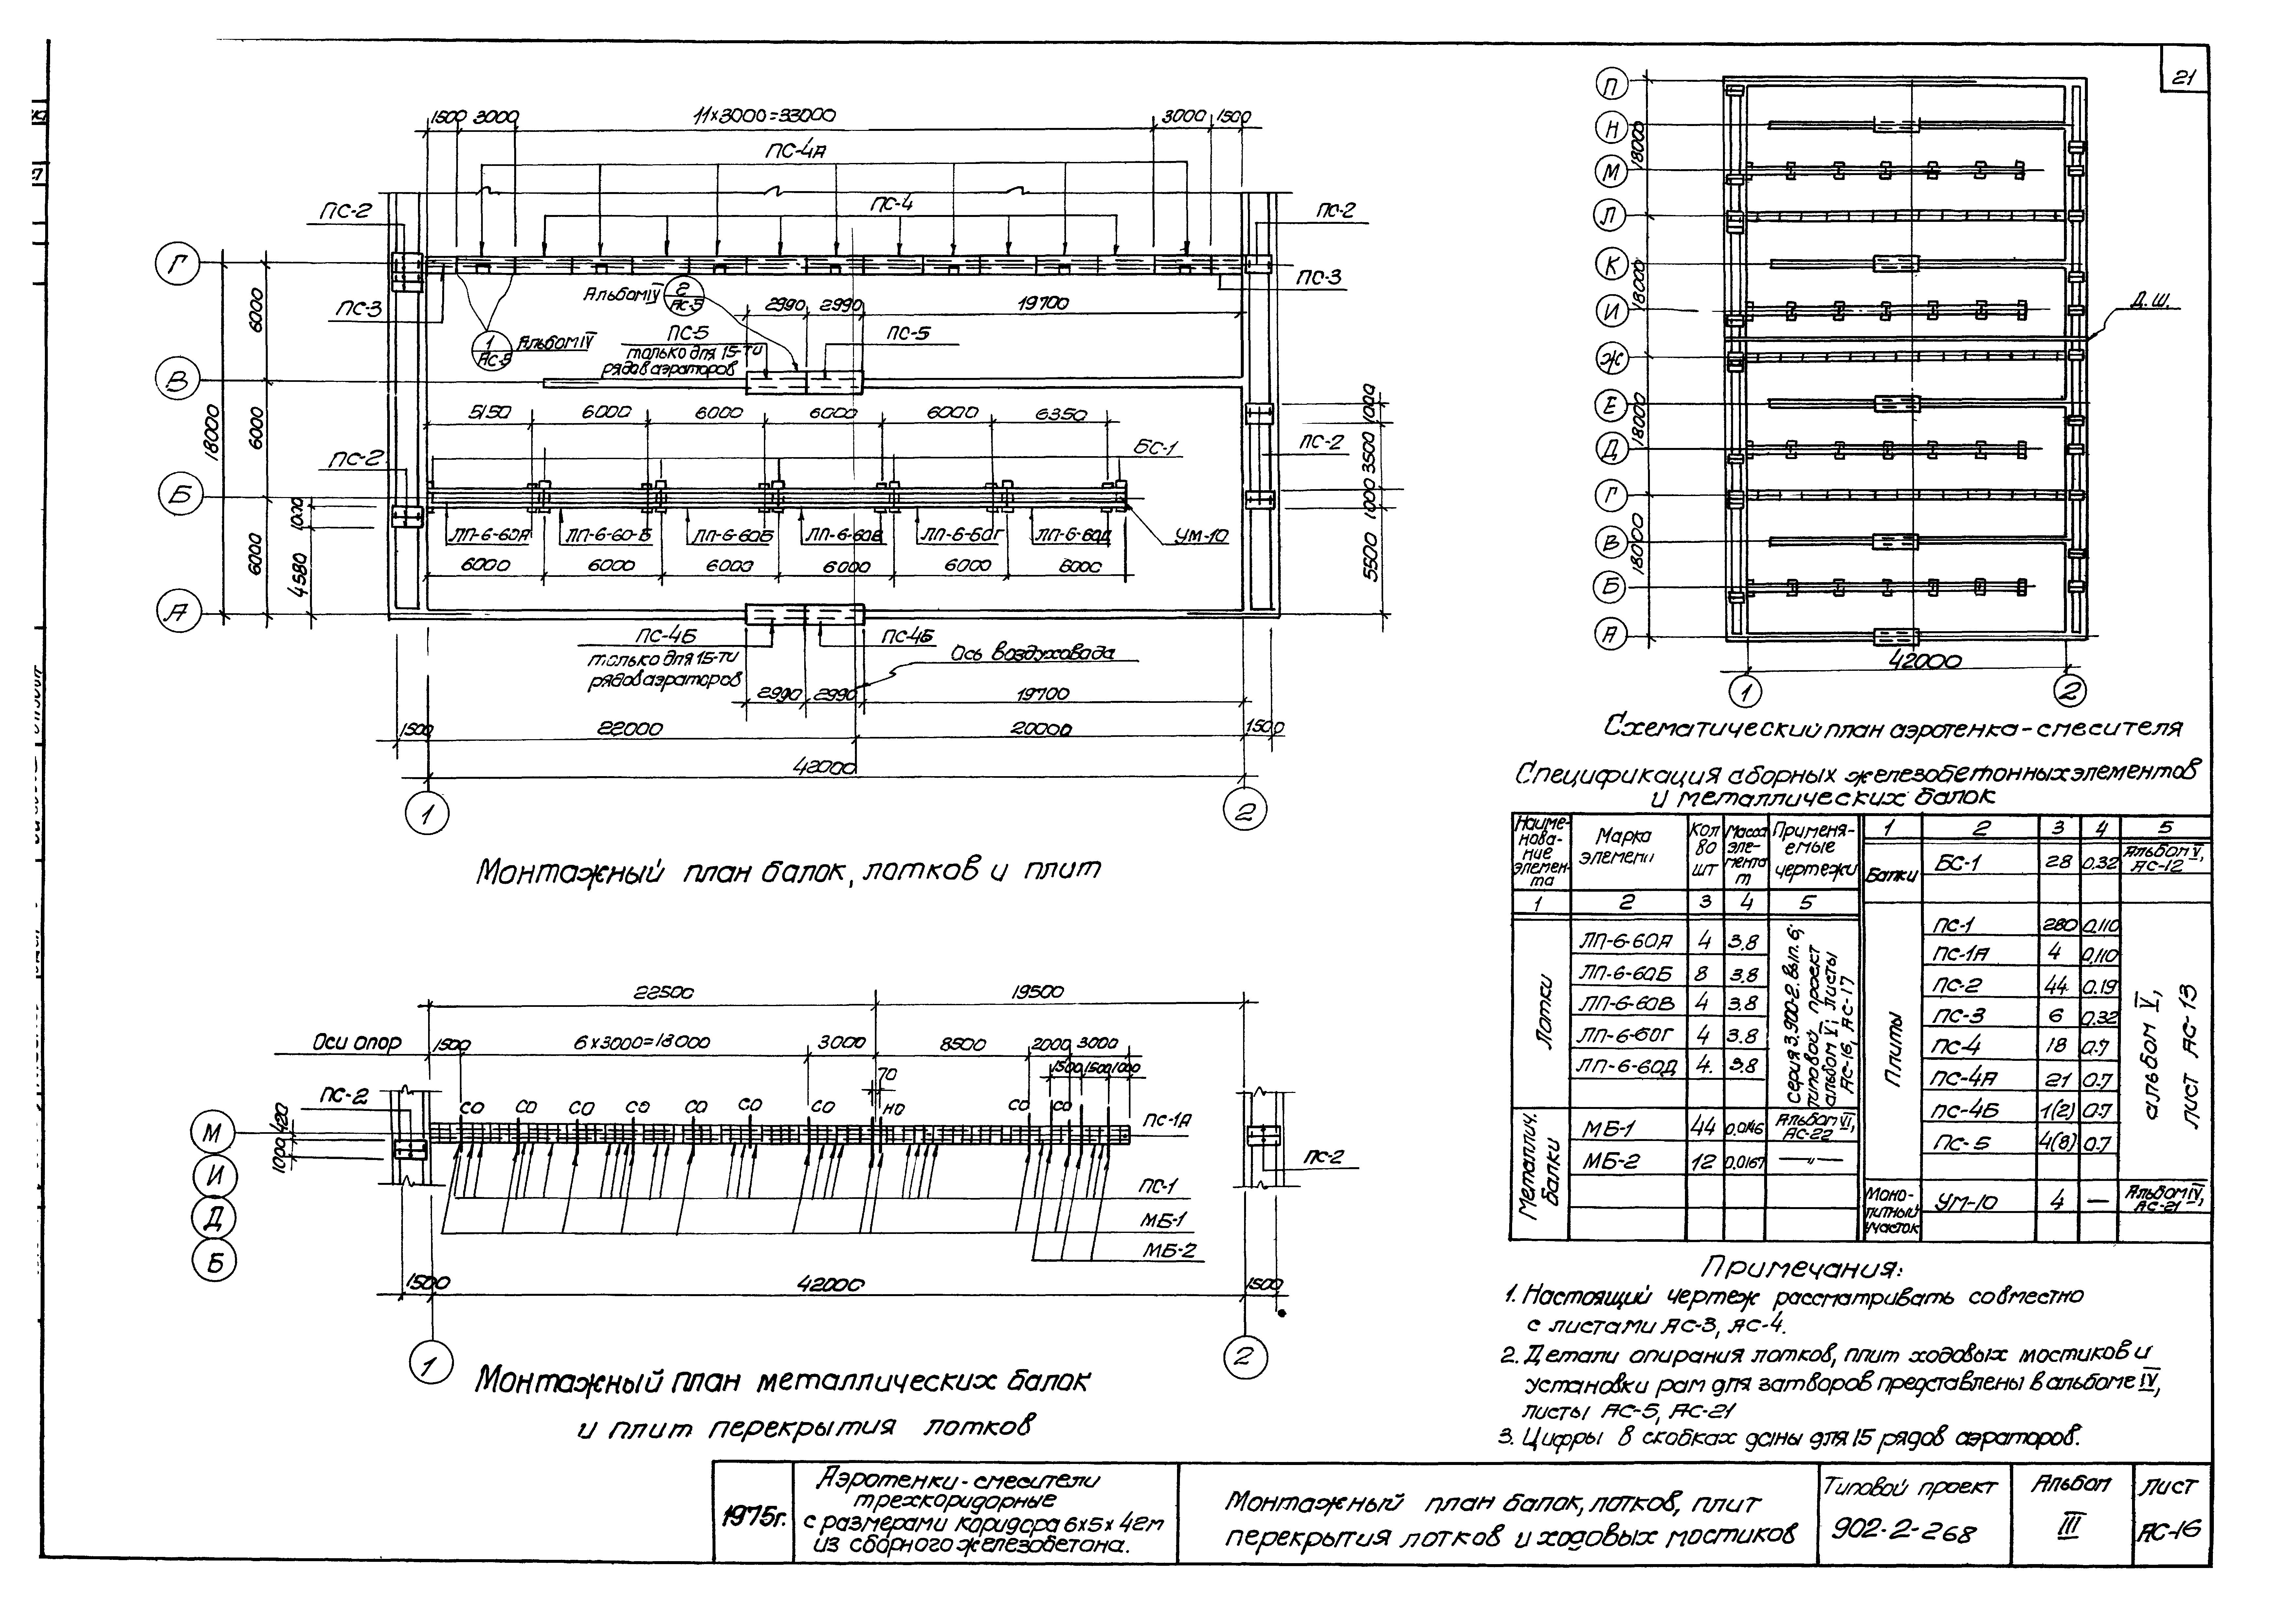 21
1500 3000 11×3000=33000 3000 1500
ПС-4А
ПС-2 ПС-4 ПС-2
Г
ПС-3 ПС-3
Альбом IV 2 АС-5
2990 2990 19700
1 АС-5 Альбом IV
ПС-5 ПС-5
только для 15-ти
рядов аэраторов
В
6000 6000 6000 18000
5150 6000 6000 6000 6000 6350
1000 3500 1000 5500
БС-1
ПС-2 ПС-2
Б
1000 4580
ЛП-6-60А ЛП-6-60-Б ЛП-6-60Б ЛП-6-60В ЛП-6-60Г ЛП-6-60Д УМ-10
6000 6000 6000 6000 6000 6000
А
ПС-4Б ПС-4Б
только для 15-ти
рядов аэраторов
Ось воздуховода
2990 2990 19700
1500 22000 20000 1500
42000
1 2
Монтажный план балок, лотков и плит
22500 19500
Оси опор 1500 6×3000=18000 3000 8500 2000 3000
1500 1500 1000
70
ПС-2 СО СО СО СО СО СО СО НО СО СО ПС-1А
420 1000
М
И
Д
Б
ПС-2
ПС-1
МБ-1
МБ-2
1500 42000 1500
1 2
Монтажный план металлических балок
и плит перекрытия лотков
П
Н
М
Л
К
И
Ж
Е
Д
Г
В
Б
А
18000 18000 18000 18000
Д.Ш.
42000
1 2
Схематический план аэротенка-смесителя
Спецификация сборных железобетонных элементов
и металлических балок
Наиме-
нова-
ние
элемен-
та
Марка
элемени
Кол
во
шт
Масса
эле-
мента
т
Применя-
емые
чертежи
1 2 3 4 5
Лотки
ЛП-6-60А 4 3.8
ЛП-6-60Б 8 3.8
ЛП-6-60В 4 3.8
ЛП-6-60Г 4 3.8
ЛП-6-60Д 4. 3.8
серия 3.900-2. Вып. 6;
типовой проект
альбом V, листы
АС-16, АС-17
Металлич.
балки
МБ-1 44 0.0146 Альбом VI,
АС-22
МБ-2 12 0.0167 —〃—
1 2 3 4 5
Балки БС-1 28 0.32 Альбом V,
АС-12
Плиты
ПС-1 280 0,110
ПС-1А 4 0,110
ПС-2 44 0.19
ПС-3 6 0.32
ПС-4 18 0.7
ПС-4А 21 0.7
ПС-4Б 1(2) 0.7
ПС-5 4(8) 0.7
альбом V,
лист АС-13
Моно-
литный
участок
УМ-10 4 — Альбом IV,
АС-21
Примечания:
1. Настоящий чертеж рассматривать совместно
с листами АС-3, АС-4.
2. Детали опирания лотков, плит ходовых мостиков и
установки рам для затворов представлены в альбоме IV,
листы АС-5, АС-21
3. Цифры в скобках даны для 15 рядов аэраторов.
1975г.
Аэротенки-смесители
трехкоридорные
с размерами коридора 6×5×42м
из сборного железобетона.
Монтажный план балок, лотков, плит
перекрытия лотков и ходовых мостиков
Типовой проект
902-2-268
Альбом
III
Лист
АС-16